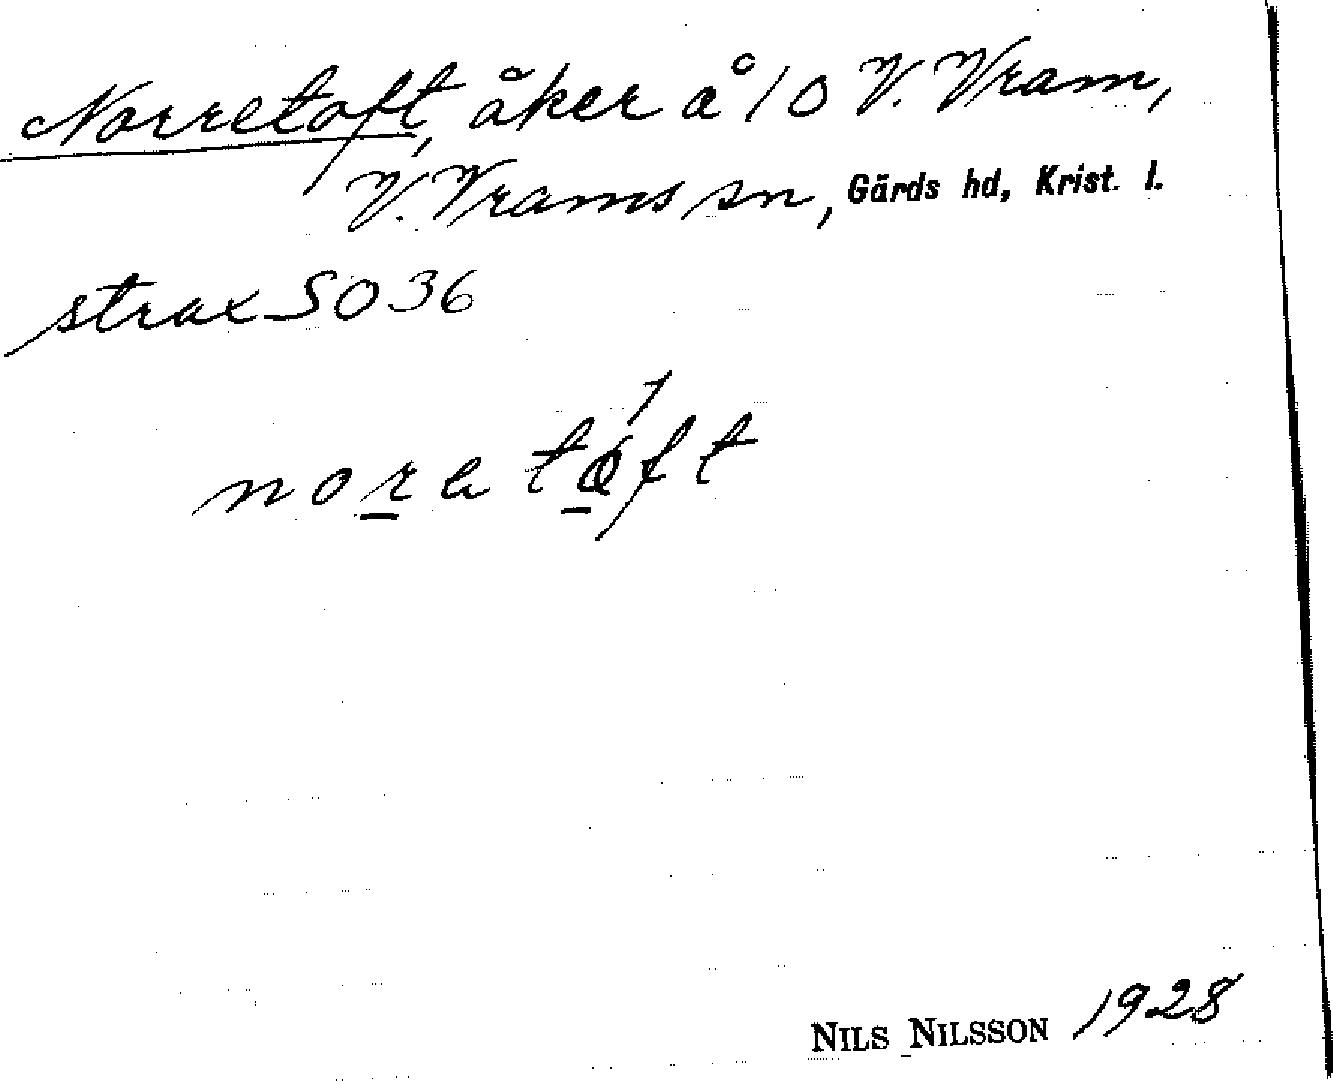 Norretoft, åker å 10 V. Vram,
V. Vrams sn, Gärds hd, Krist. l.
strax SO 36
nora tåft
NILS NILSSON 1928